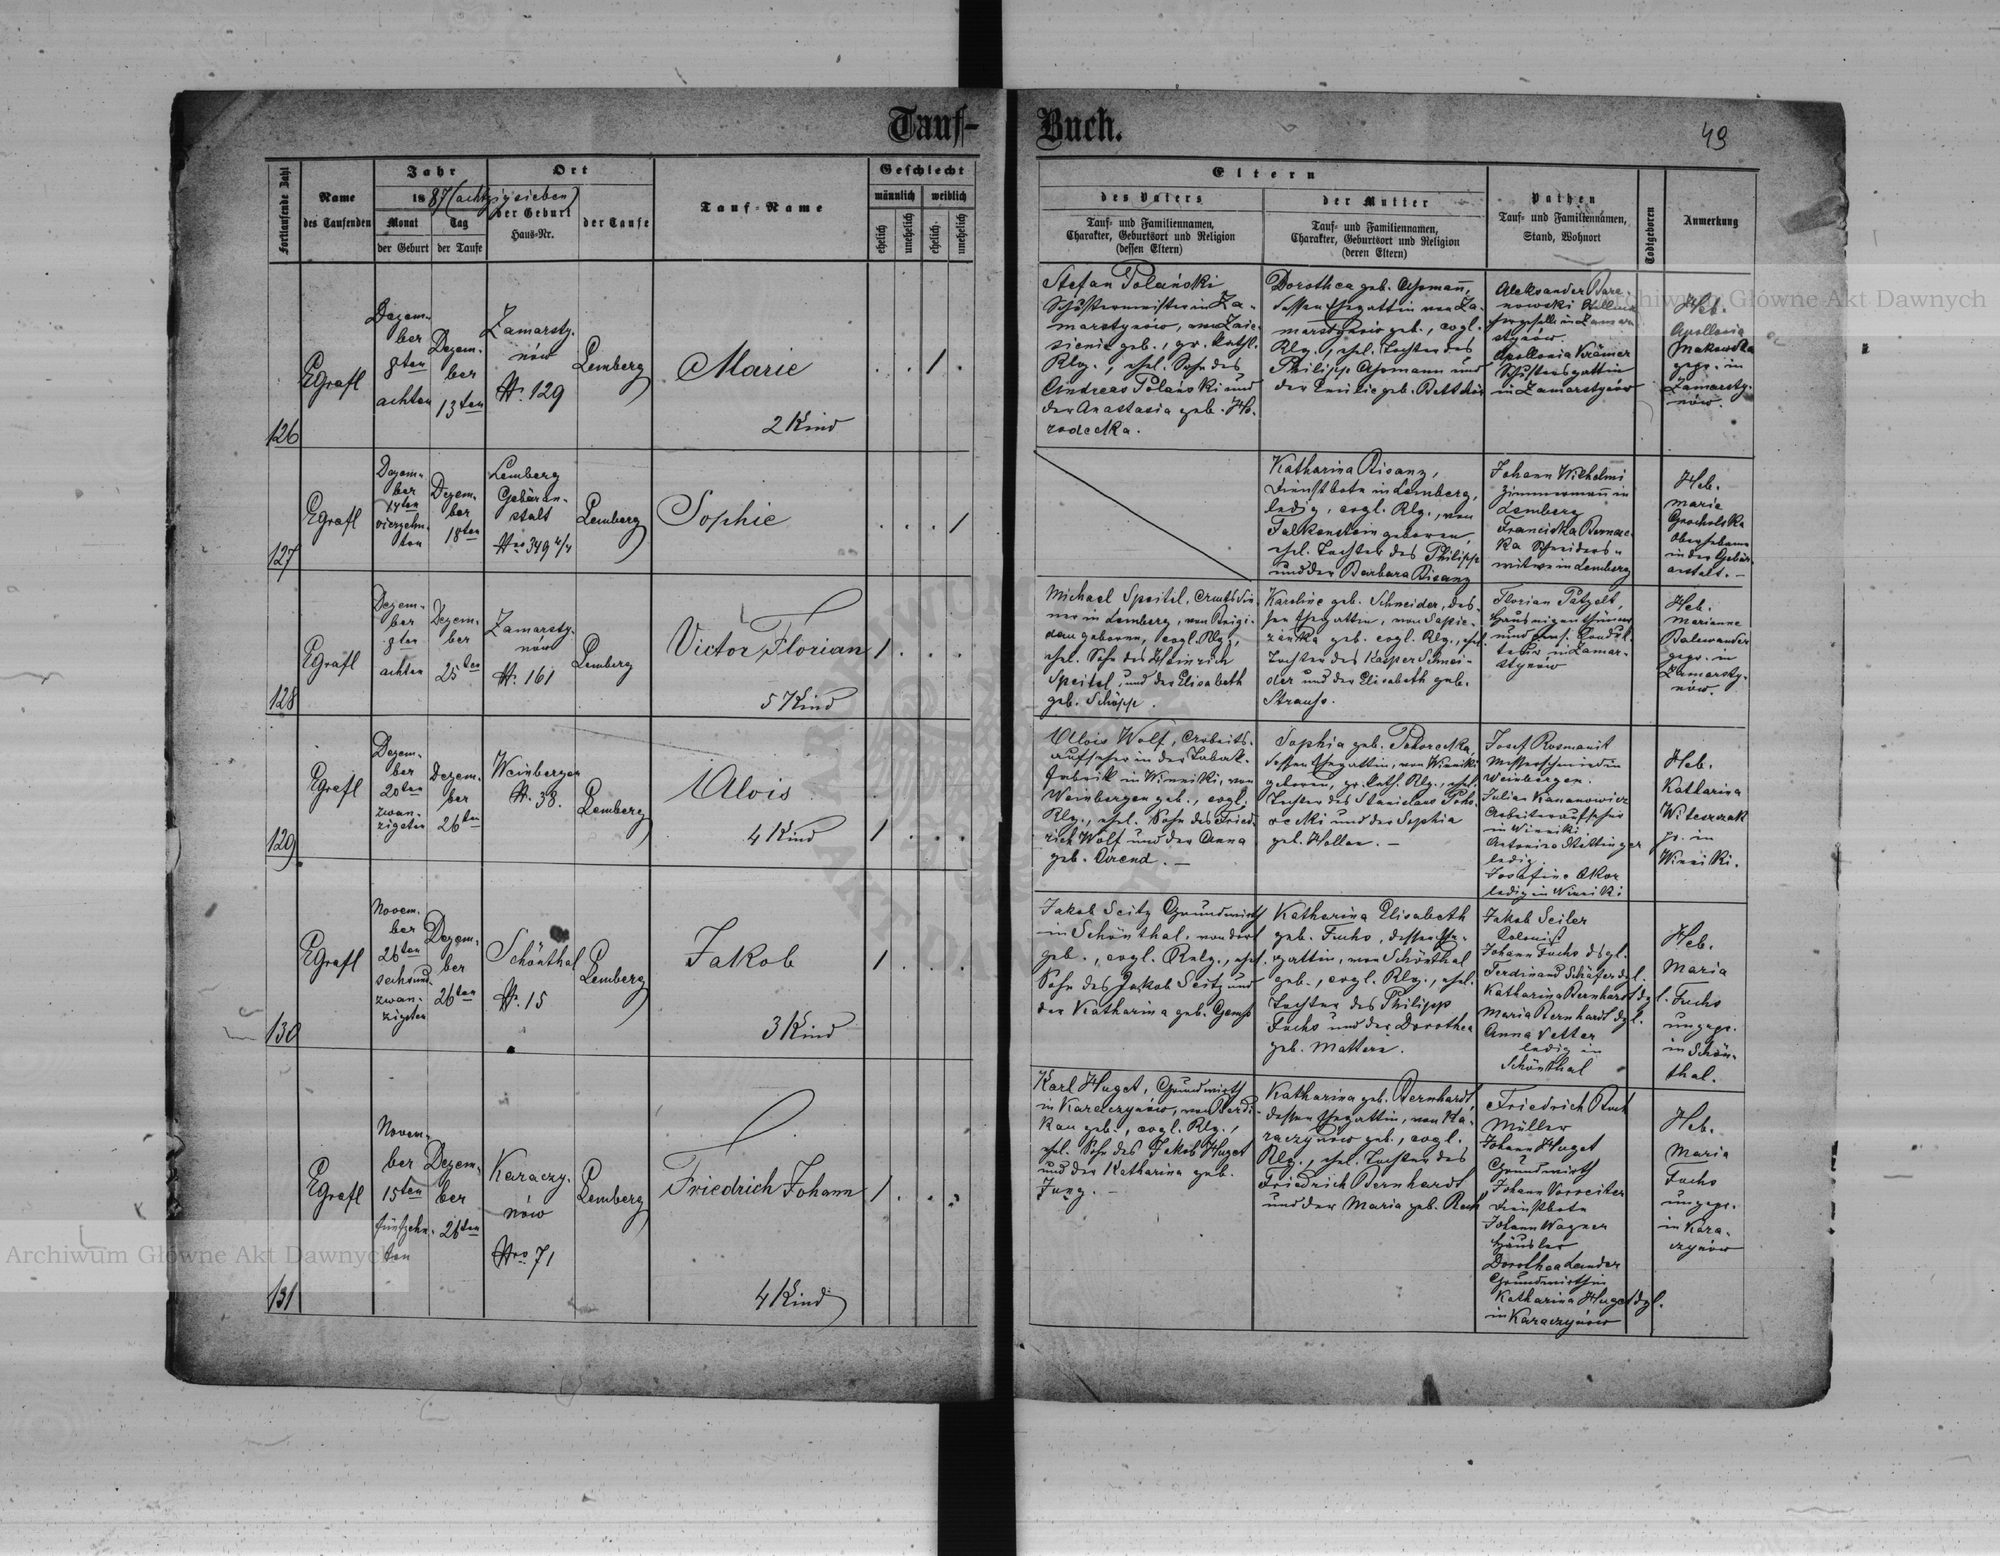 Tauf-Buch.
49
Fortlaufende Zahl
Name
des Taufenden
Jahr
1887 (achtzigsieben)
Monat
der Geburt
Tag
der Taufe
Ort
der Geburt
Haus-Nr.
der Taufe
Tauf-Name
Geschlecht
männlich
weiblich
ehelich
unehelich
ehelich
unehelich
Eltern
des Vaters
Tauf- und Familiennamen,
Charakter, Geburtsort und Religion
(dessen Eltern)
der Mutter
Tauf- und Familiennamen,
Charakter, Geburtsort und Religion
(deren Eltern)
Pathen
Tauf- und Familiennamen,
Stand, Wohnort
Todtgeboren
Anmerkung
126
EGrafl
Dezem-
ber
8ten
achten
Dezem-
ber
13ten
Zamarsty-
nów
N. 129
Lemberg
Marie
2 Kind
. . 1 .
Stefan Polański
Schustermeister in Za-
marstynów, von Znie-
sienie geb., gr. kathl.
Rlg., ehel. Sohn des
Andreas Polański und
der Anastasia geb. Ho-
rodecka.
Dorothea geb.
dessen Ehegattin von Za-
marstynów geb., evgl.
Rlg., ehel. Tochter des
Philipp und
der geb.
Aleksander Bara-
nowski
in Zamar-
stynów
Apollonia Krämer
Schustersgattin
in Zamarstynów
Heb.
Apollonia
Makowska
gepr. in
Zamarsty-
nów.
127
EGrafl
Dezem-
ber
14ten
vierzehn-
ten
Dezem-
ber
18ten
Lemberg
Gebäran-
stalt
Nro 349 4/4
Lemberg
Sophie
. . . 1
Katharina Bisanz,
Dienstbote in Lemberg,
ledig, evgl. Rlg., von
Falkenstein geboren,
ehel. Tochter des Philipp
und der Barbara Bisanz
Johann Wilhelmi
Zimmermann in
Lemberg
Franciska Bernac-
ka Schneiders-
witwe in Lemberg
Heb.
Maria
Grocholska
Oberhebame
in der Gebär-
anstalt. -
128
EGrafl
Dezem-
ber
8ten
achten
Dezem-
ber
25ten
Zamarsty-
nów
N. 161
Lemberg
Victor Florian
5 Kind
1 . . .
Michael Speitel, Amtsdie-
ner in Lemberg, von Brigi-
dau geboren, evgl. Rlg.,
ehel. Sohn des Heinrich
Speitel und der Elisabeth
geb. Schöpp.
Karoline geb. Schneider, des-
sen Ehegattin, von Sapie-
zanka geb. evgl. Rlg., ehel.
Tochter des Kasper Schnei-
der und der Elisabeth geb.
Strauss.
Florian Patzelt,
Hauseigenthümer
und pens. Conduk-
teur in Zamar-
stynów
Heb.
Marianne
gepr. in
Zamarsty-
nów.
129
EGrafl
Dezem-
ber
20ten
zwan-
zigsten
Dezem-
ber
26ten
Weinbergen
N. 38.
Lemberg
Alois
4 Kind
1 . . .
Alois Wolf, Arbeits-
aufseher in der Tabak-
fabrik in Winniki, von
Weinbergen geb., evgl.
Rlg., ehel. Sohn des Fried-
rich Wolf und der Anna
geb. Arend. -
Sophia geb. Pohorecka,
dessen Ehegattin, von Winniki
geboren, gr. kath. Rlg., ehel.
Tochter des Stanislaus Poho-
recki und der Sophia
geb. Holler. -
Josef Rosmanit
Messerschmied in
Weinbergen.
Julian Kananowicz
Arbeiteraufseher
in Winniki
Antonina Mettinger
ledig
Josefine Akor
ledig in Winniki
Heb.
Katharina
Witeszczak
gr. in
Winniki.
130
EGrafl
Novem-
ber
26ten
sechsund-
zwan-
zigsten
Dezem-
ber
26ten
Schönthal
N. 15
Lemberg
Jakob
3 Kind
1 . . .
Jakob Seitz Grundwirth
in Schönthal, von dort
geb., evgl. Relg., ehel.
Sohn des Jakob Seitz und
der Katharina geb. Gemss
Katharina Elisabeth
geb. Fuchs, dessen Ehe-
gattin, von Schönthal
geb., evgl. Rlg., ehel.
Tochter des Philipp
Fuchs und der Dorothea
geb. Mattern.
Jakob Seiler
Kolonist
Johann Fuchs dsgl.
Ferdinand Schäfer dgl.
Katharina Bernhardt dgl.
Maria Bernhardt dgl.
Anna Vetter
ledig in
Schönthal
Heb.
Maria
Fuchs
ungepr.
in Schön-
thal.
131
EGrafl
Novem-
ber
15ten
fünfzehn-
ten
Dezem-
ber
26ten
Karaczy-
nów
Nro 71
Lemberg
Friedrich Johann
4 Kind
1 . . .
Karl Huget, Grundwirth
in Karaczynów, von Berdi-
kau geb., evgl. Rlg.,
ehel. Sohn des Jakob Huget
und der Katharina geb.
Jung. -
Katharina geb. Bernhardt,
dessen Ehegattin, von Ka-
raczynów geb., evgl.
Rlg., ehel. Tochter des
Friedrich Bernhardt
und der Maria geb. Roch
Friedrich Roch
Müller
Johann Huget
Grundwirth
Johann Vorreiter
Dienstbote
Johann Wagner
Häusler
Dorothea Lander
Grundwirthin
Katharina Huget dgl.
in Karaczynów
Heb.
Maria
Fuchs
ungepr.
in Kara-
czynów
Archiwum Główne Akt Dawnych
Archiwum Główne Akt Dawnych